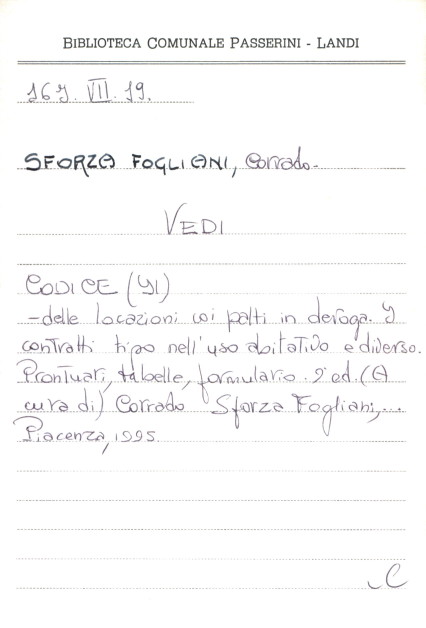 BIBLIOTECA COMUNALE PASSERINI - LANDI
16J. VII. 19.
SFORZA FOGLIANI, Corrado-
VEDI
CODICE (Il)
-delle locazioni coi patti in deroga. I
contratti tipo nell'uso abitativo e diverso.
Prontuari, tabelle, formulario. 2ª ed. (A
cura di) Corrado Sforza Fogliani,...
Piacenza, 1995.
C